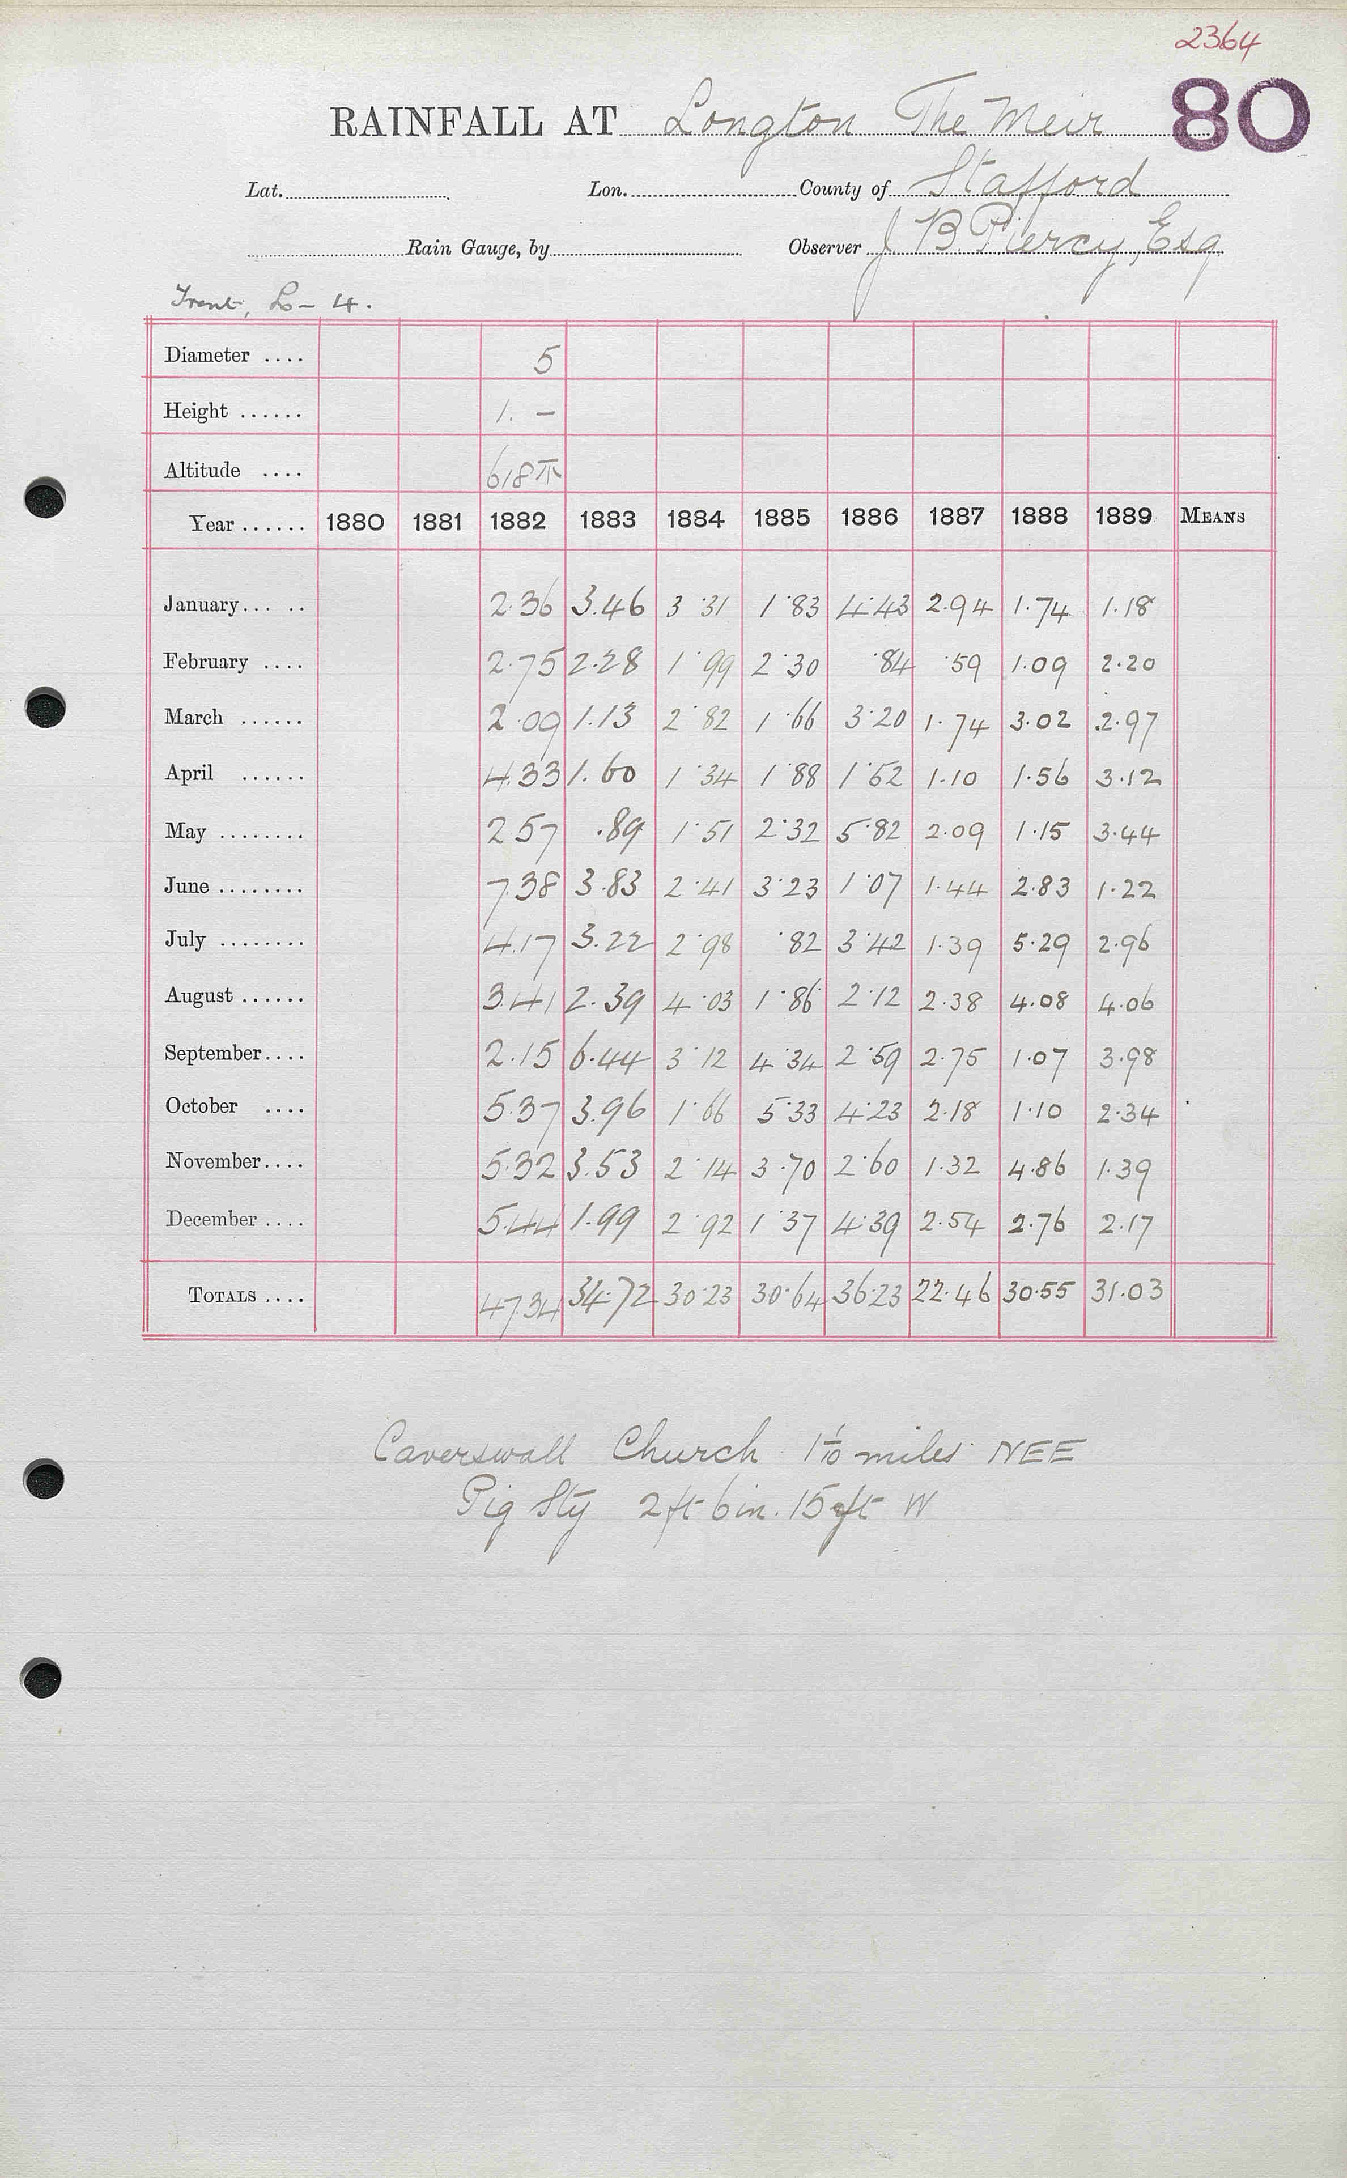 2364
RAINFALL AT Longton The Meir 80
Lat. Lon. County of Stafford
Rain Gauge, by Observer J B Piercy, Esq
Trent, L - 4.
Diameter .... 5
Height ...... 1. -
Altitude .... 618 T
Year ...... 1880 1881 1882 1883 1884 1885 1886 1887 1888 1889 MEANS
January... .. 2.36 3.46 3.31 1.83 4.43 2.94 1.74 1.18
February .... 2.75 2.28 1.99 2.30 .84 .59 1.09 2.20
March ...... 2.09 1.13 2.82 1.66 3.20 1.74 3.02 2.97
April ...... 4.33 1.60 1.34 1.88 1.52 1.10 1.56 3.12
May ........ 2.57 .89 1.51 2.32 5.82 2.09 1.15 3.44
June ........ 7.38 3.83 2.41 3.23 1.07 1.44 2.83 1.22
July ........ 4.17 3.22 2.98 .82 3.42 1.39 5.29 2.96
August ...... 3.41 2.39 4.03 1.86 2.12 2.38 4.08 4.06
September.... 2.15 6.44 3.12 4.34 2.59 2.75 1.07 3.98
October .... 5.37 3.96 1.66 5.33 4.23 2.18 1.10 2.34
November.... 5.32 3.53 2.14 3.70 2.60 1.32 4.86 1.39
December .... 5.44 1.99 2.92 1.37 4.39 2.54 2.76 2.17
TOTALS .... 47.34 34.72 30.23 30.64 36.23 22.46 30.55 31.03
Caverswall Church 1 1/10 miles NEE
Pig Sty 2 ft 6 in. 15 ft W